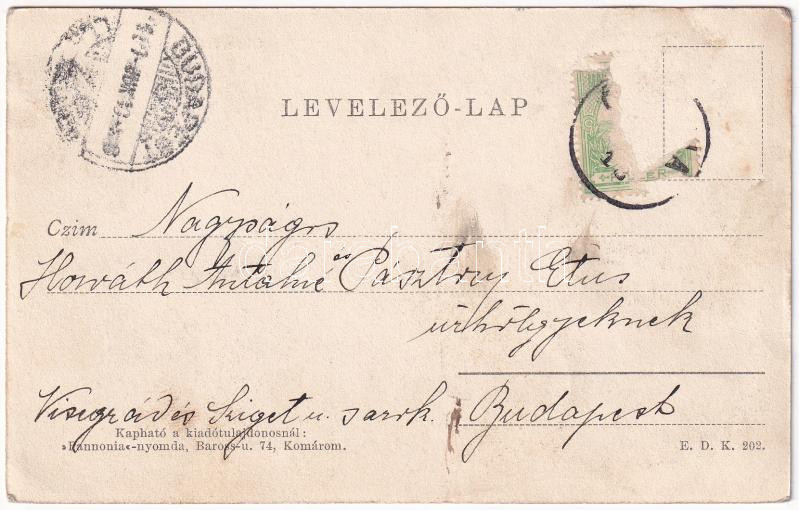 BUDAPEST
LEVELEZŐ-LAP
FILLÉR
Czim Nagyságos
Horváth Antalné és Pásztory Etus
úrhölgyeknek
Visegrád és Sziget u. sark. Budapest
Kapható a kiadótulajdonosnál:
»Pannonia«-nyomda, Baross-u. 74, Komárom.
E. D. K. 202.